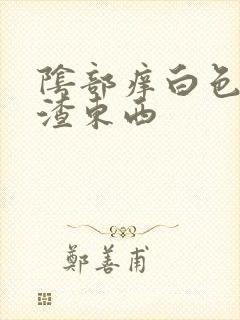 陰部痒白色
渣东西
鄭善甫